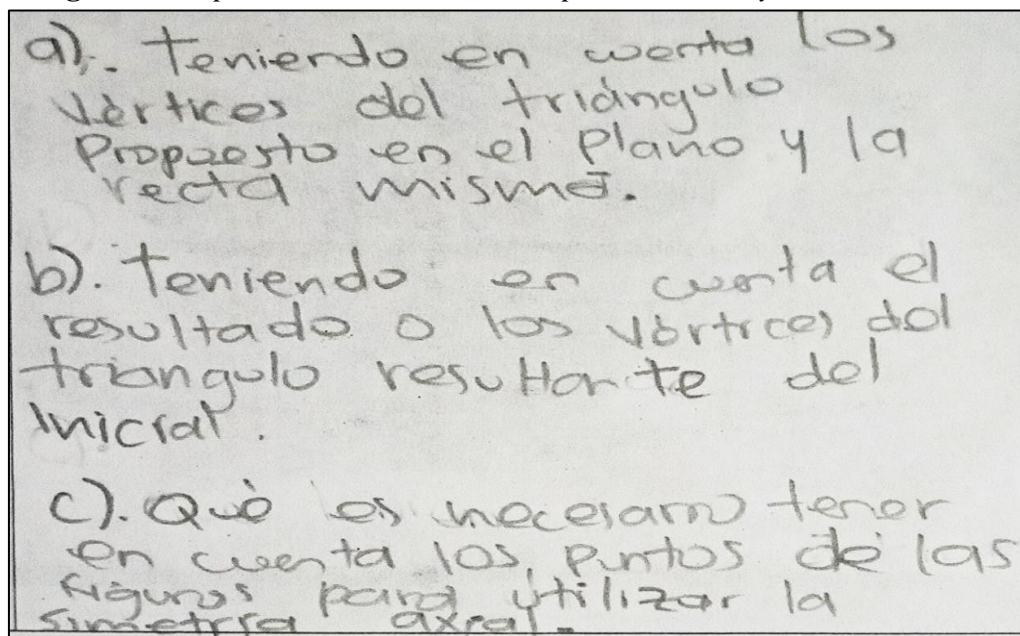 a). Teniendo en cuenta los
vértices del triángulo
Propuesto en el Plano y la
recta misma.
b). Teniendo en cuenta el
resultado o los vértices del
triangulo resultante del
inicial.
c). Qué es necesario tener
en cuenta los puntos de las
figuras para utilizar la
simetría axial.